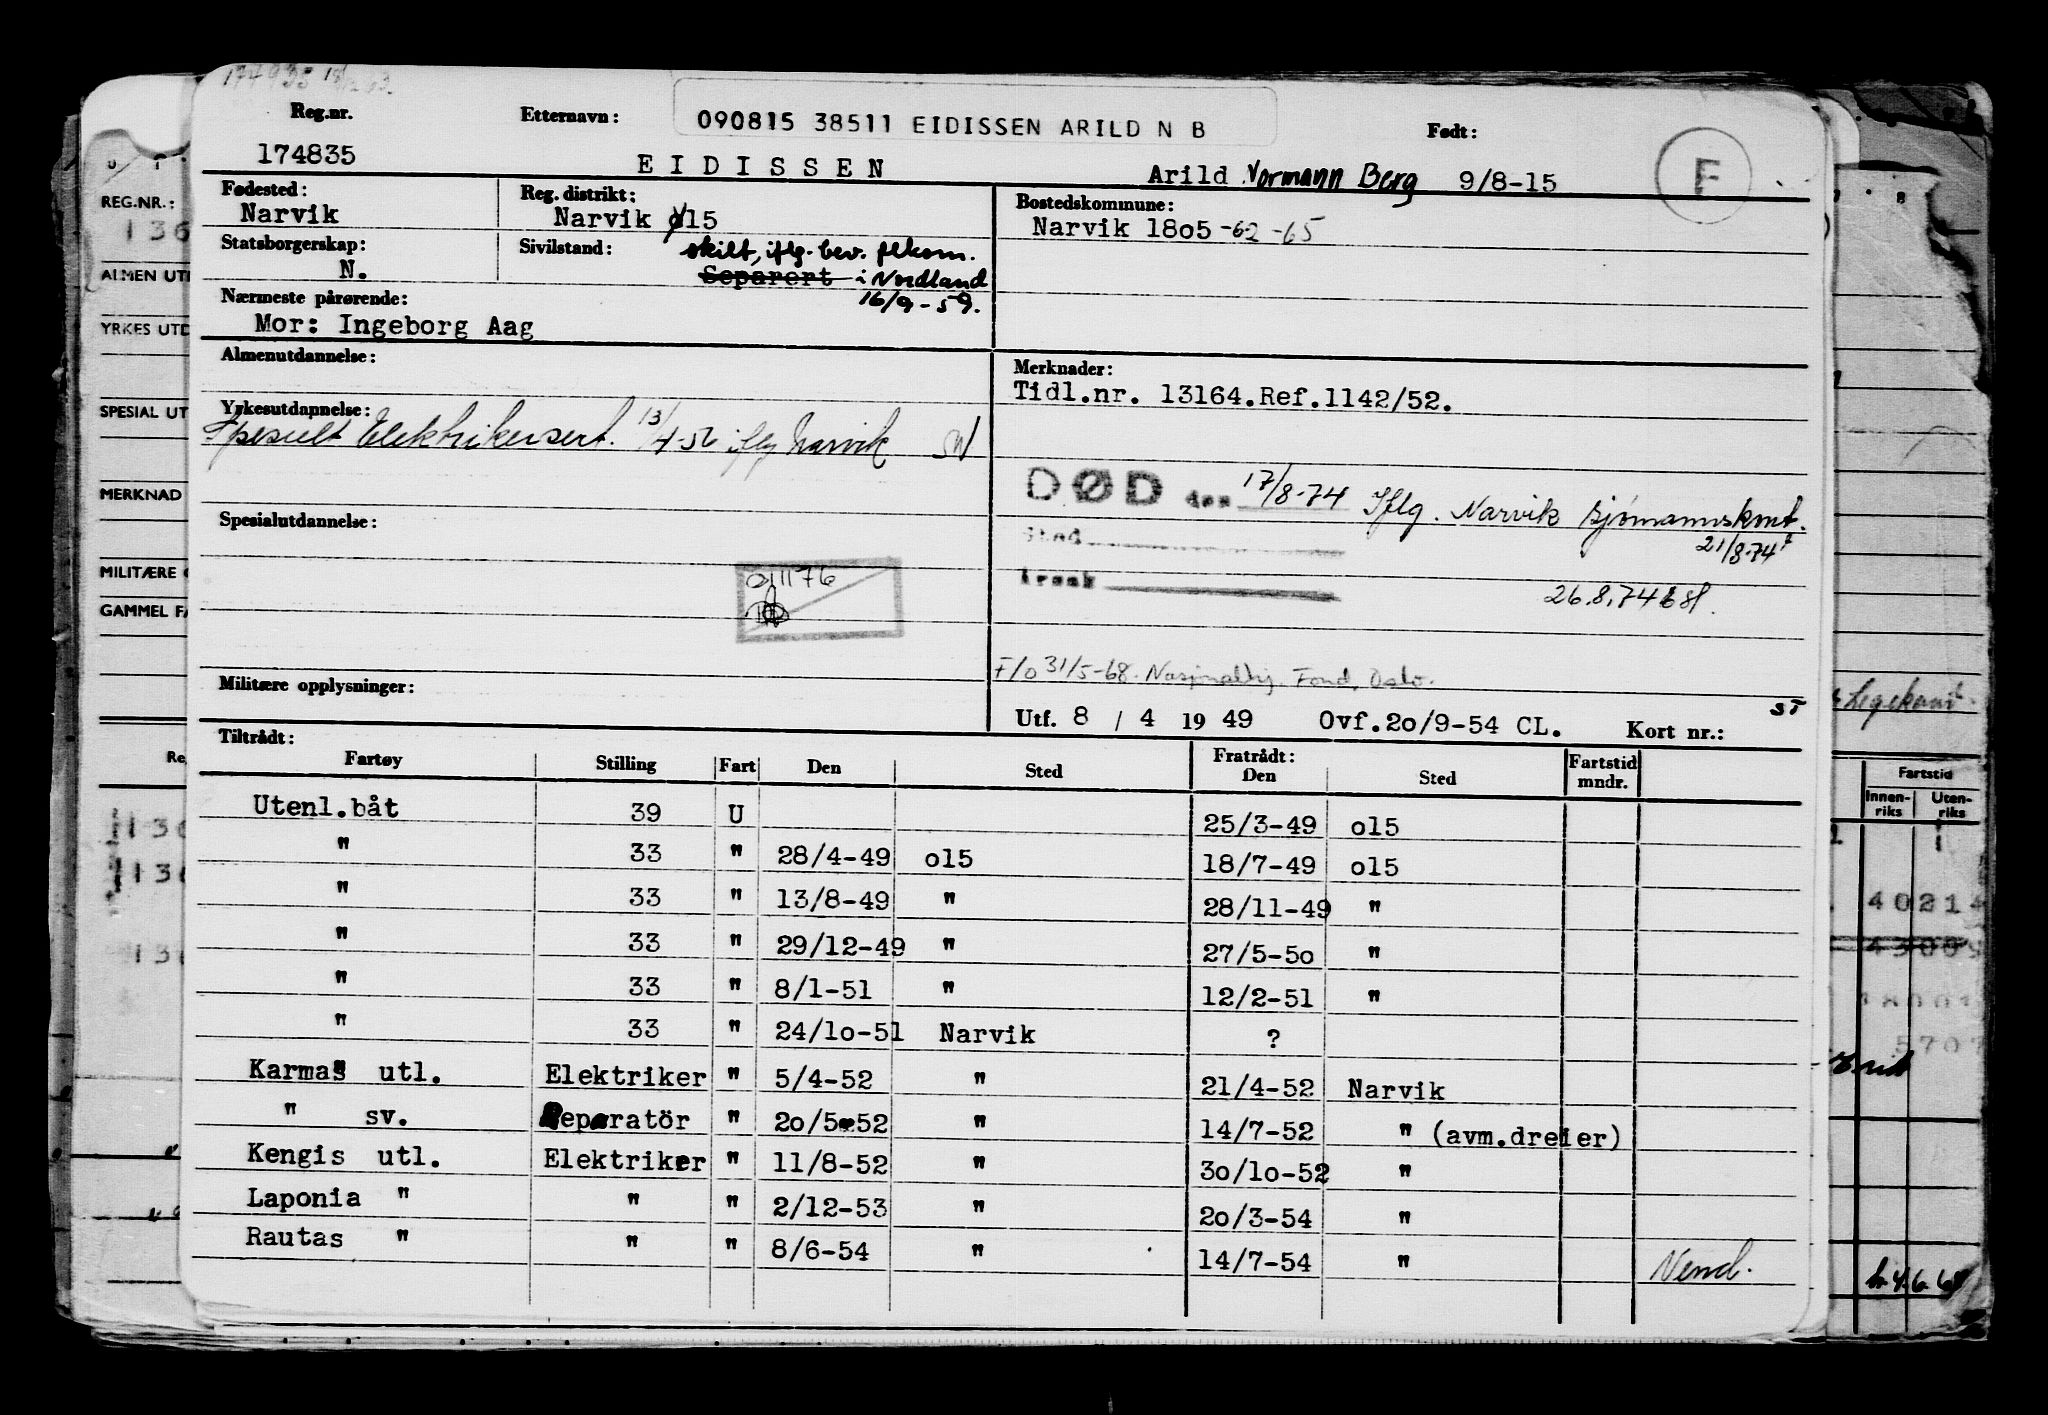 174935 18/12 63.
Reg.nr. Etternavn: 090815 38511 EIDISSEN ARILD N B Født:
174835 EIDISSEN Arild Normann Berg 9/8-15 F
Fødested: Reg. distrikt: Bostedskommune:
Narvik Narvik o15 Narvik 18o5 -62 -65
Statsborgerskap: Sivilstand: skilt, iflg. bev. flkom.
N. Separert i Nordland
Nærmeste pårørende: 16/9-59.
Mor: Ingeborg Aag
Almenutdannelse: Merknader:
Tidl.nr. 13164.Ref.1142/52.
Yrkesutdannelse:
Spesielt Elektrikersert. 13/4-52 iflg Narvik
DØD den 17/8-74 Iflg. Narvik sjømannskont.
Spesialutdannelse: Sted 21/8-74
Årsak
26.8.74
F/o 31/5-68. Fond, Oslo.
Militære opplysninger: ST
Utf. 8 / 4 19 49 Ovf.2o/9-54 CL. Kort nr.:
Tiltrådt: Fratrådt:
Fartøy Stilling Fart Den Sted Den Sted Fartstid mndr.
Utenl.båt 39 U 25/3-49 o15
" 33 " 28/4-49 o15 18/7-49 o15
" 33 " 13/8-49 " 28/11-49 "
" 33 " 29/12-49 " 27/5-5o "
" 33 " 8/1-51 " 12/2-51 "
" 33 " 24/1o-51 Narvik ?
Karmas utl. Elektriker " 5/4-52 " 21/4-52 Narvik
" sv. Reparatör " 2o/5-52 " 14/7-52 " (avm.dreier)
Kengis utl. Elektriker " 11/8-52 " 3o/1o-52 "
Laponia " " " 2/12-53 " 2o/3-54 "
Rautas " " " 8/6-54 " 14/7-54 " Vend.
REG.NR.:
136
ALMEN UTD
YRKES UTD
SPESIAL UT
MERKNAD
MILITÆRE
GAMMEL FA
Fartstid
Innen-riks Uten-riks
4 0 2 1 4